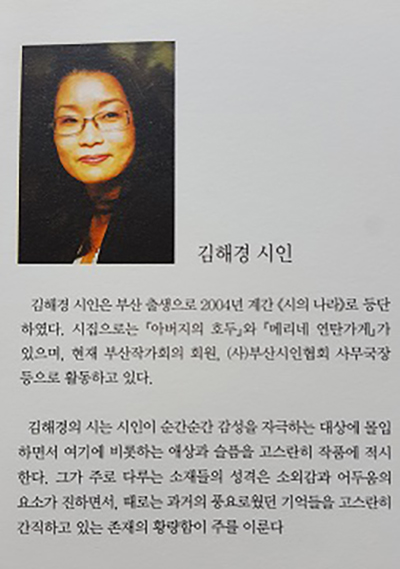 김해경 시인
김해경 시인은 부산 출생으로 2004년 계간 《시의 나라》로 등단
하였다. 시집으로는 『아버지의 호두』와 『메리네 연탄가게』가
있으며, 현재 부산작가회의 회원, (사)부산시인협회 사무국장
등으로 활동하고 있다.
김해경의 시는 시인이 순간순간 감성을 자극하는 대상에 몰입
하면서 여기에 비롯하는 애상과 슬픔을 고스란히 작품에 적시
한다. 그가 주로 다루는 소재들의 성격은 소외감과 어두움의
요소가 진하면서, 때로는 과거의 풍요로웠던 기억들을 고스란히
간직하고 있는 존재의 황량함이 주를 이룬다